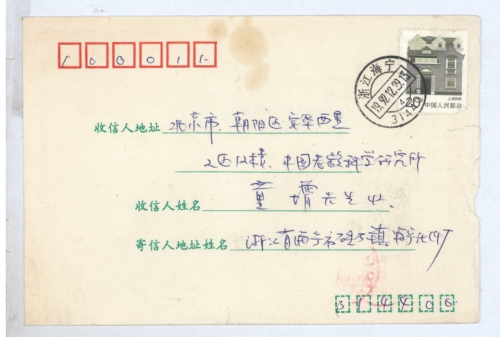 100011
浙江海宁
19.92.12.29.15
20 中国人民邮政
收信人地址 北京市.朝阳区安华西里
2区12楼.中国老龄科学研究所
收信人姓名 童 先生收.
寄信人地址姓名 浙江省海宁市硖石镇
314400